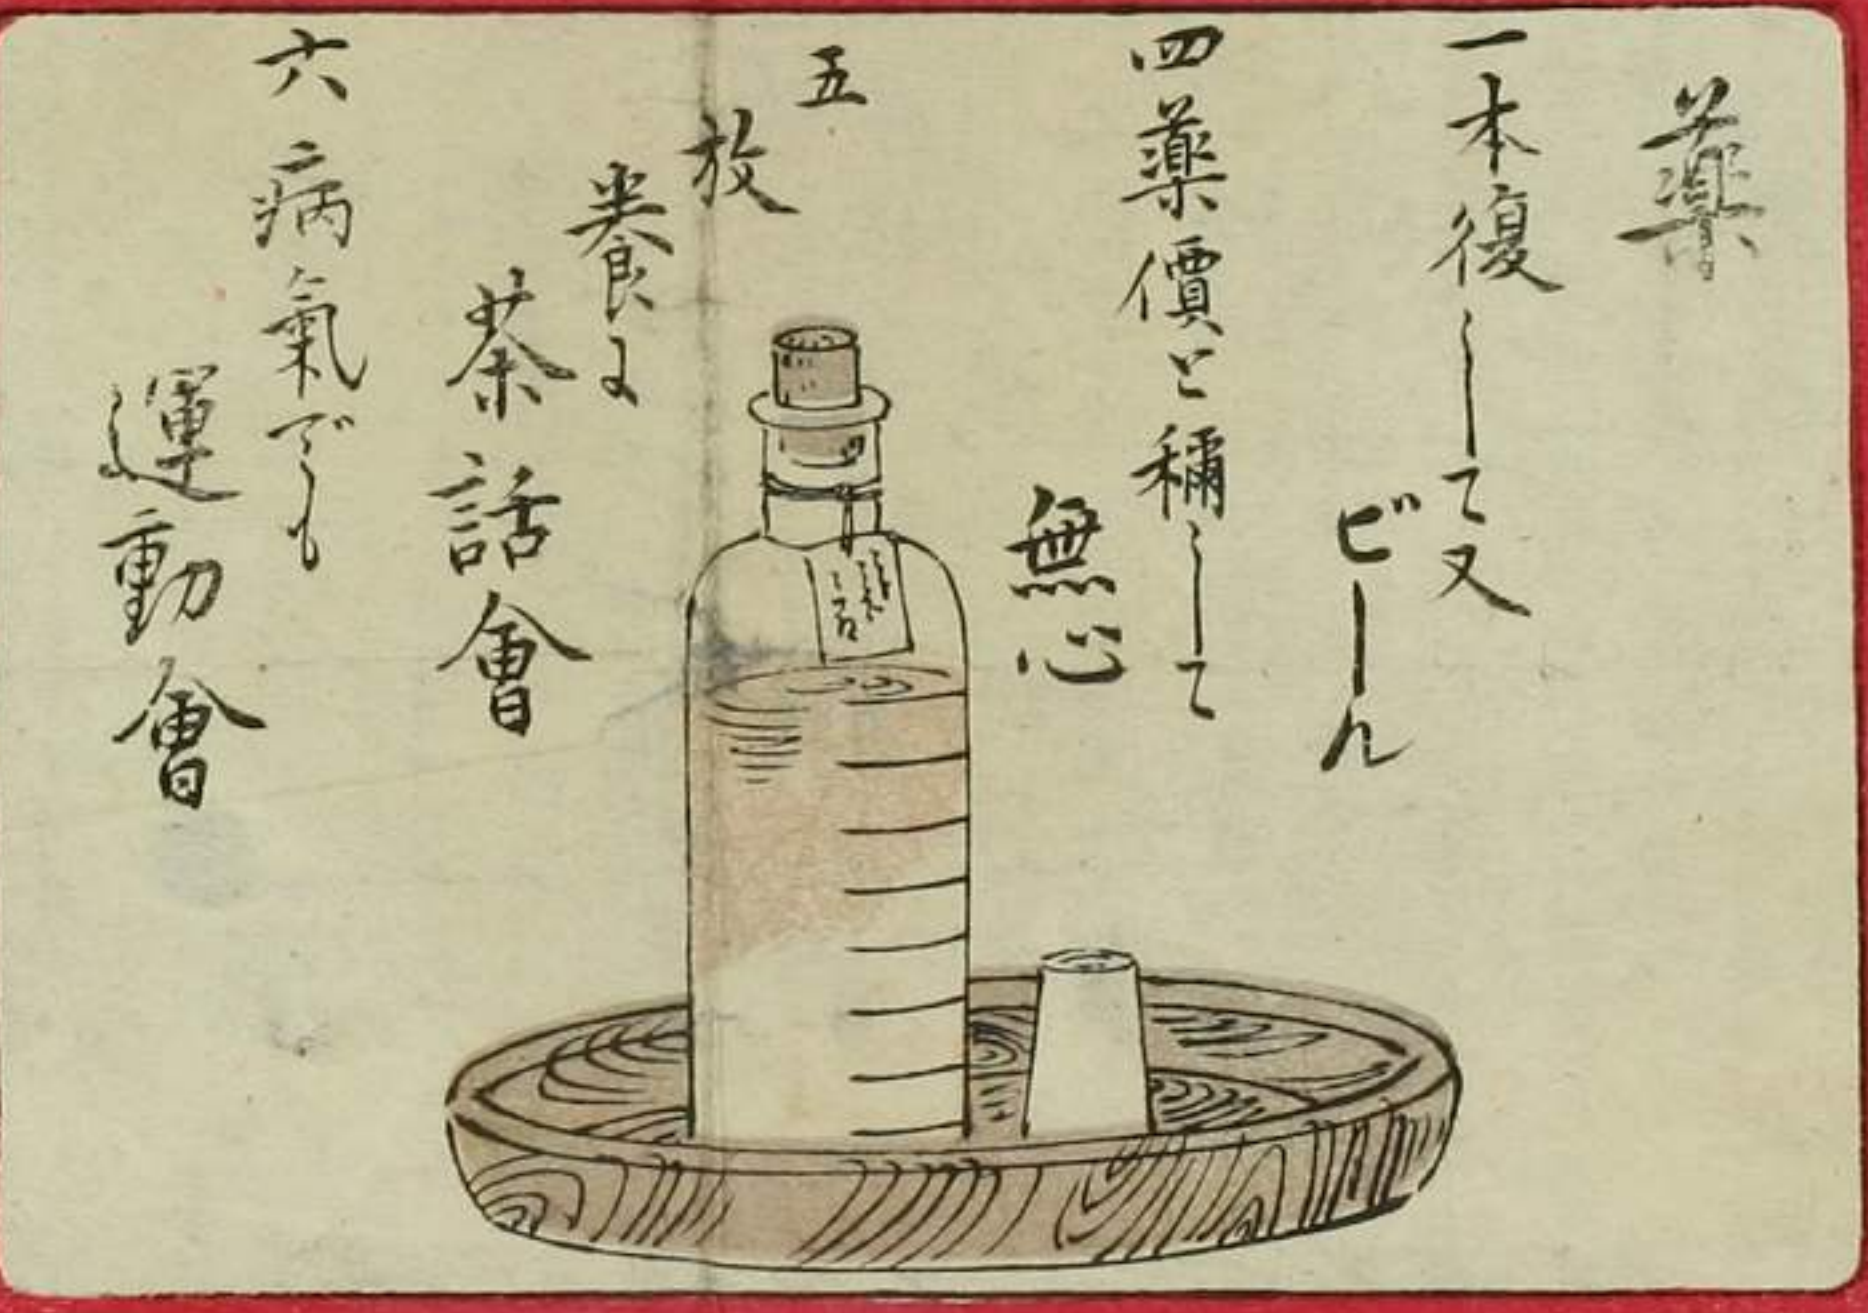 薬
一本復して又
ビール
四薬價と稱して
無心
五
放
養に
茶話會
六病氣でも
運動會